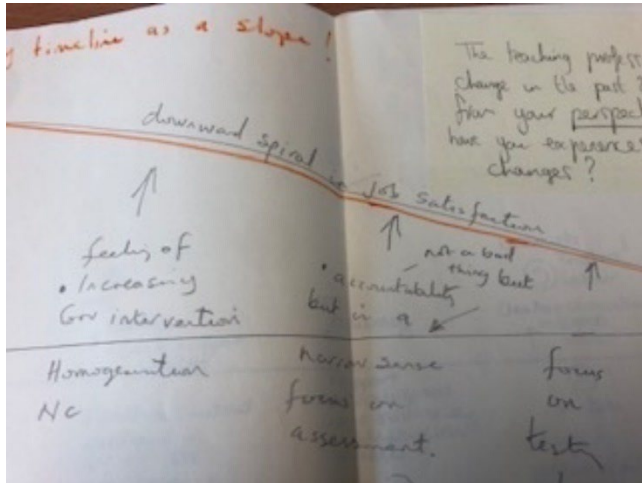 timeline as a slope!
The teaching profess
change in the past
from your perspec
have you experience
changes?
downward spiral in Job satisfaction
feeling of
• Increasing
Gov intervention
not a bad
thing but
• accountability
but in a
Homogenisation
NC
narrow sense
focus on
assessment.
focus
on
testing